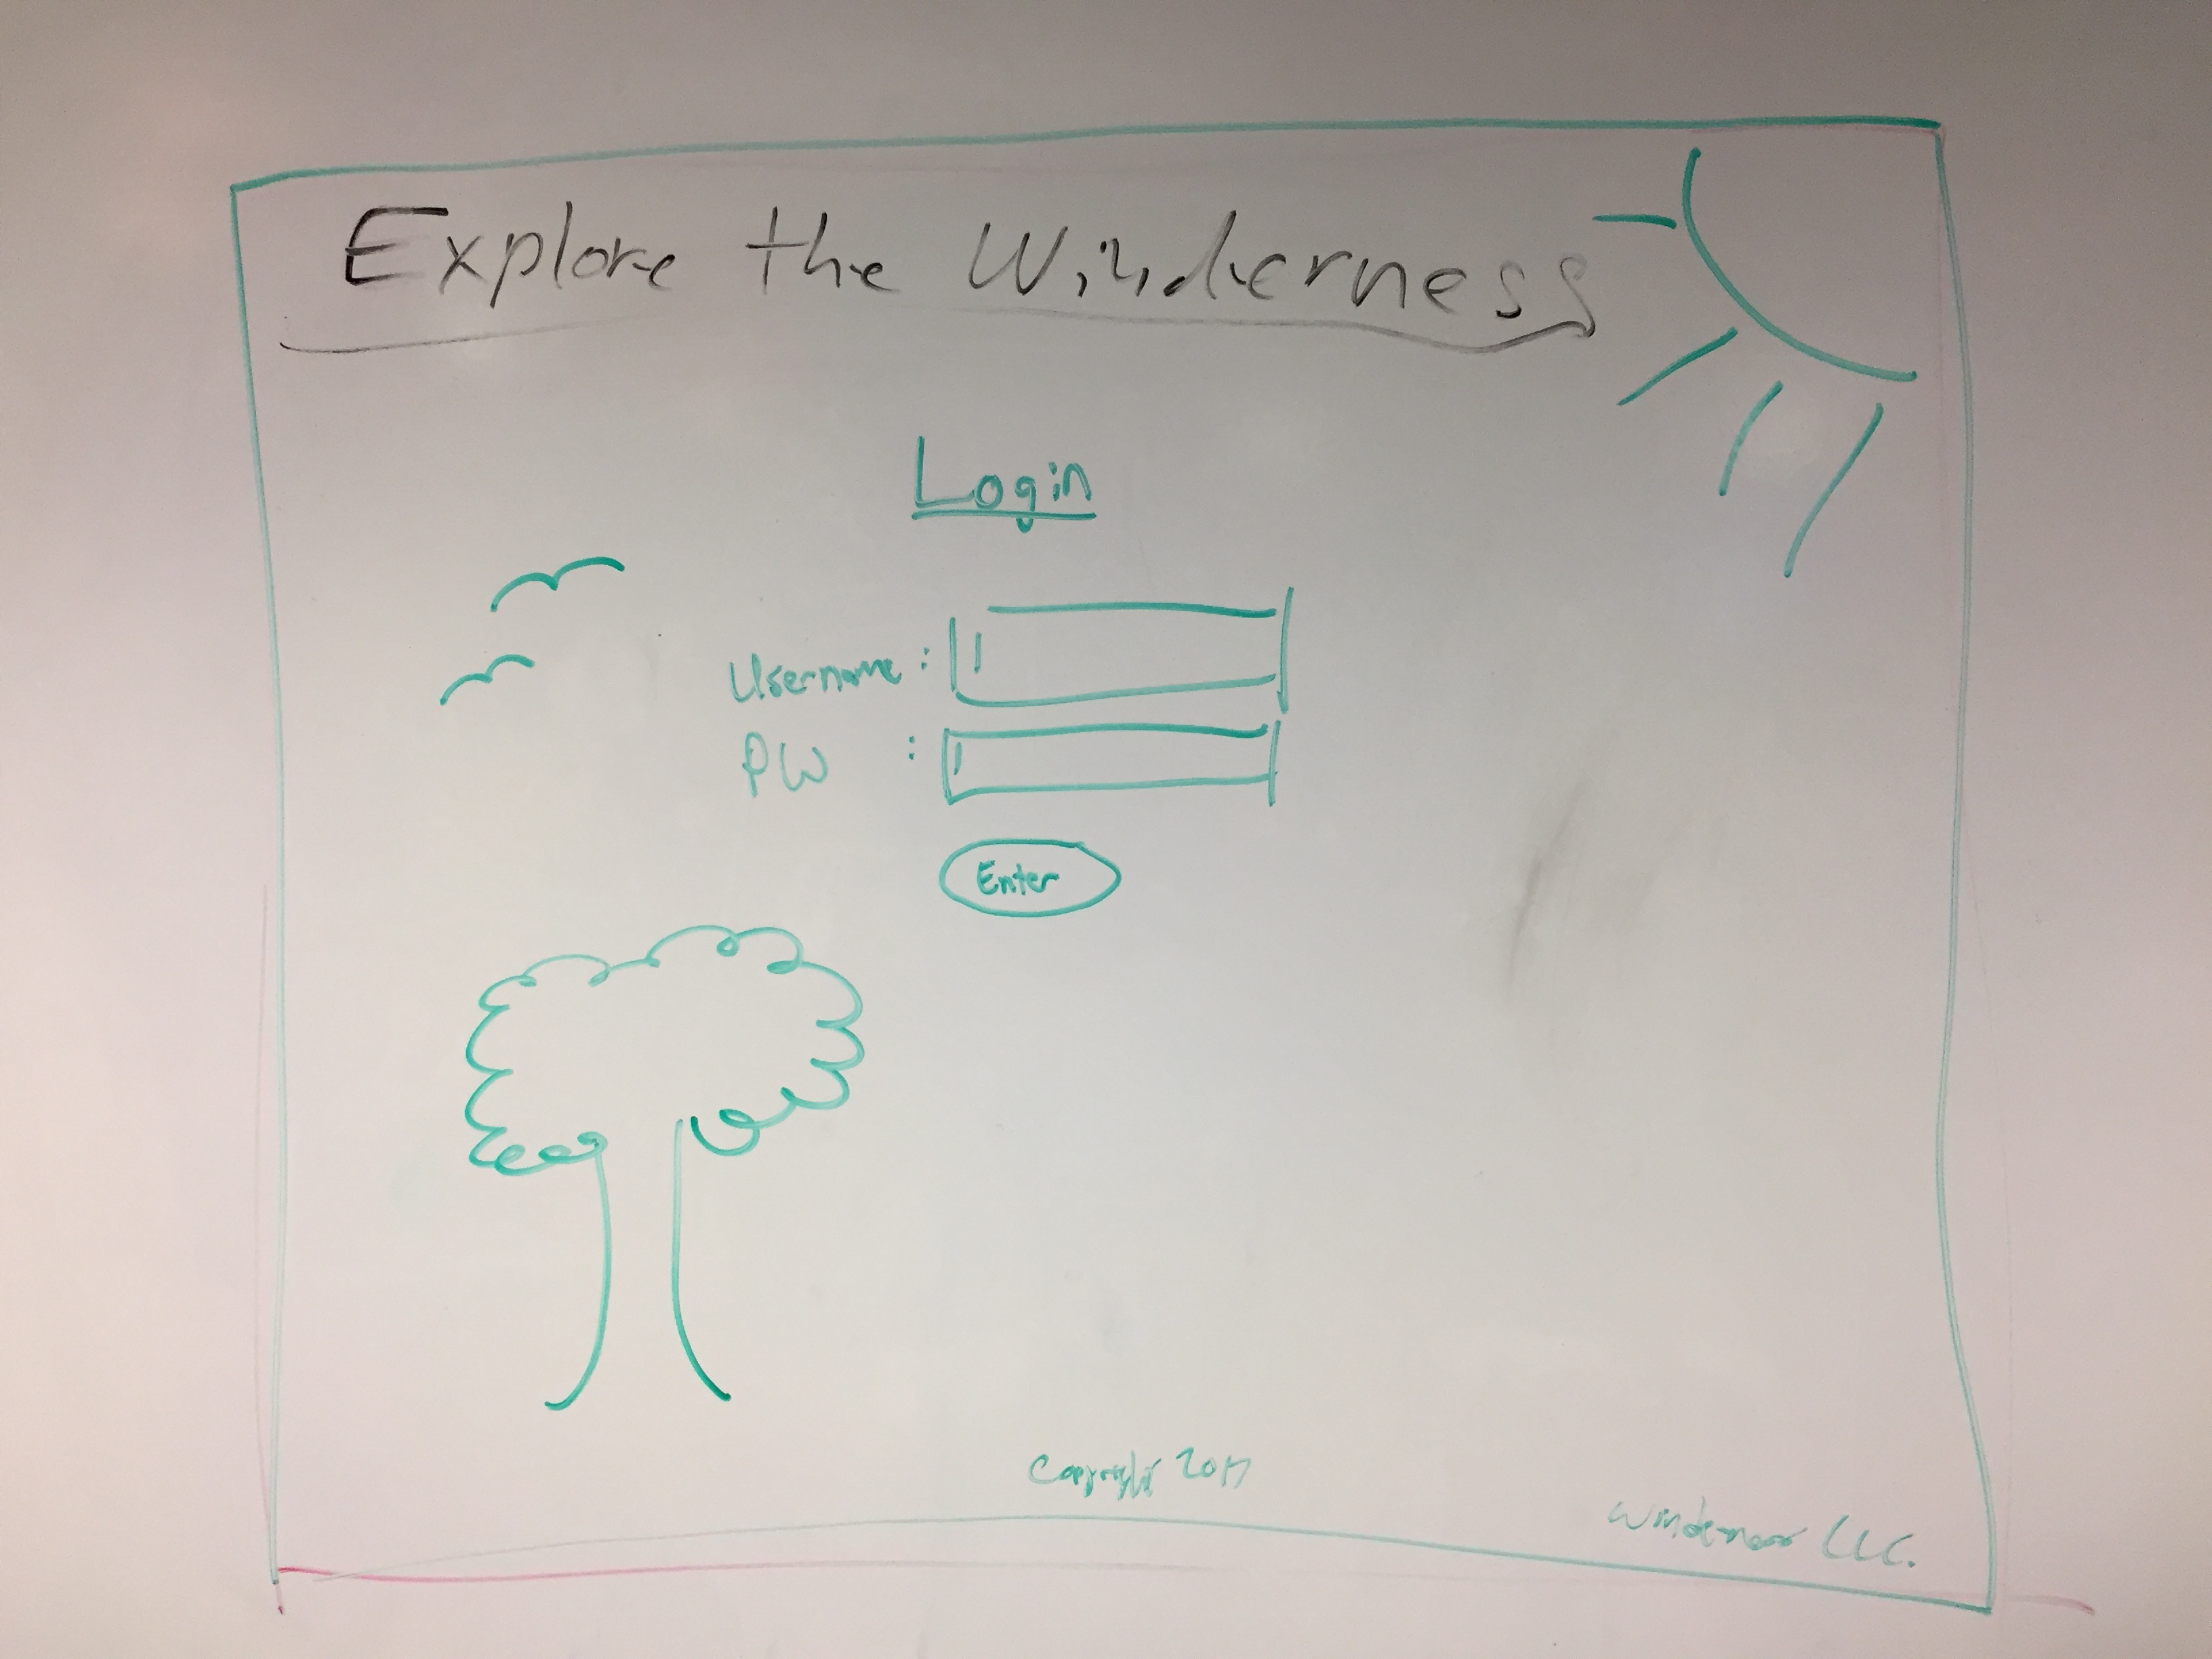 Explore the Winderness
Login
Username :
PW :
Enter
Copyright 2017
Winderness LLC.